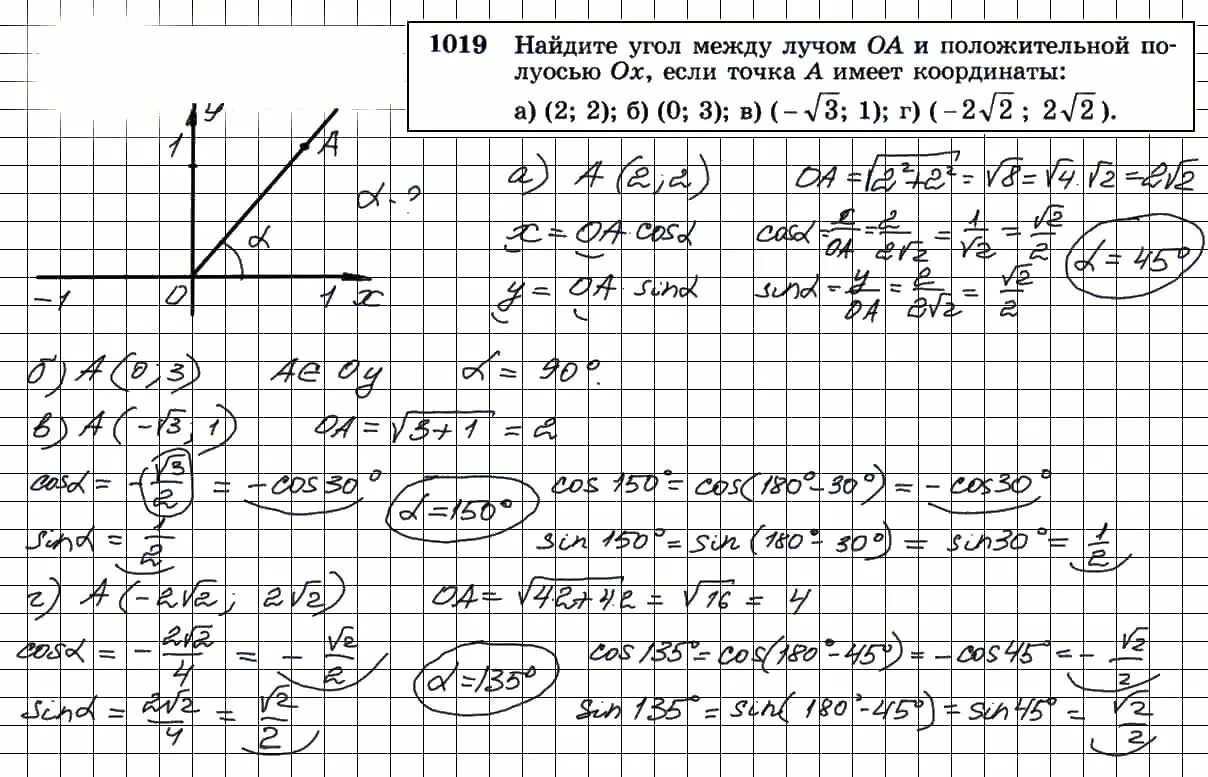 1019 Найдите угол между лучом OA и положительной по-
луосью Ox, если точка A имеет координаты:
а) (2; 2); б) (0; 3); в) (−√3; 1); г) (−2√2 ; 2√2).
y
1
A
α - ?
α
-1 0 1 x
а) A (2; 2) OA = √2²+2² = √8 = √4·√2 = 2√2
x = OA · cosα cosα = x/OA = 2/2√2 = 1/√2 = √2/2
α = 45°
y = OA · sinα sinα = y/OA = 2/2√2 = √2/2
б) A (0; 3) A∈ Oy α = 90°.
в) A (-√3; 1) OA = √3+1 = 2
cosα = -√3/2 = -cos30° α = 150° cos 150° = cos(180°-30°) = -cos30°
sinα = 1/2 sin 150° = sin (180°- 30°) = sin30° = 1/2
г) A (-2√2; 2√2) OA = √4·2+4·2 = √16 = 4
cosα = - 2√2/4 = - √2/2 α = 135° cos 135° = cos(180°-45°) = -cos45° = - √2/2
sinα = 2√2/4 = √2/2 sin 135° = sin( 180°-45°) = sin45° = √2/2